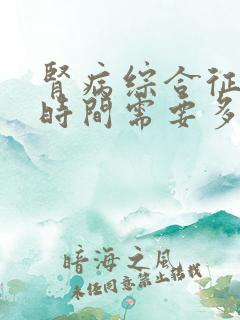 腎病綜合征
時間需要多
暗海之风
未经同意禁止搭载